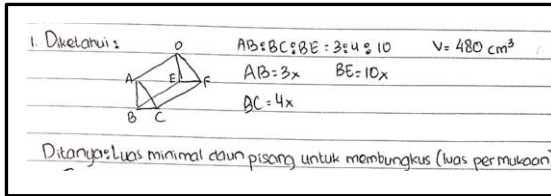 1. Diketahui: AB:BC:BE = 3:4:10 V = 480 cm³
AB = 3x BE = 10x
BC = 4x
D
A E F
B C
Ditanya: Luas minimal daun pisang untuk membungkus (luas permukaan)